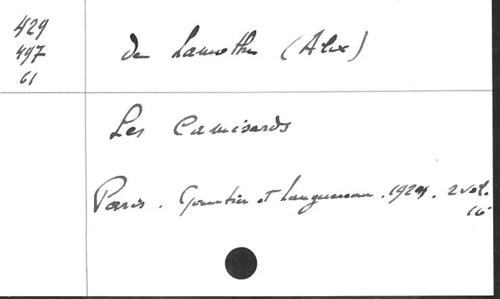 429
497
61
de Lamothe (Alex)
Les Camisards
Paris. Gautier et Languereau. 1929. 2 vol.
16